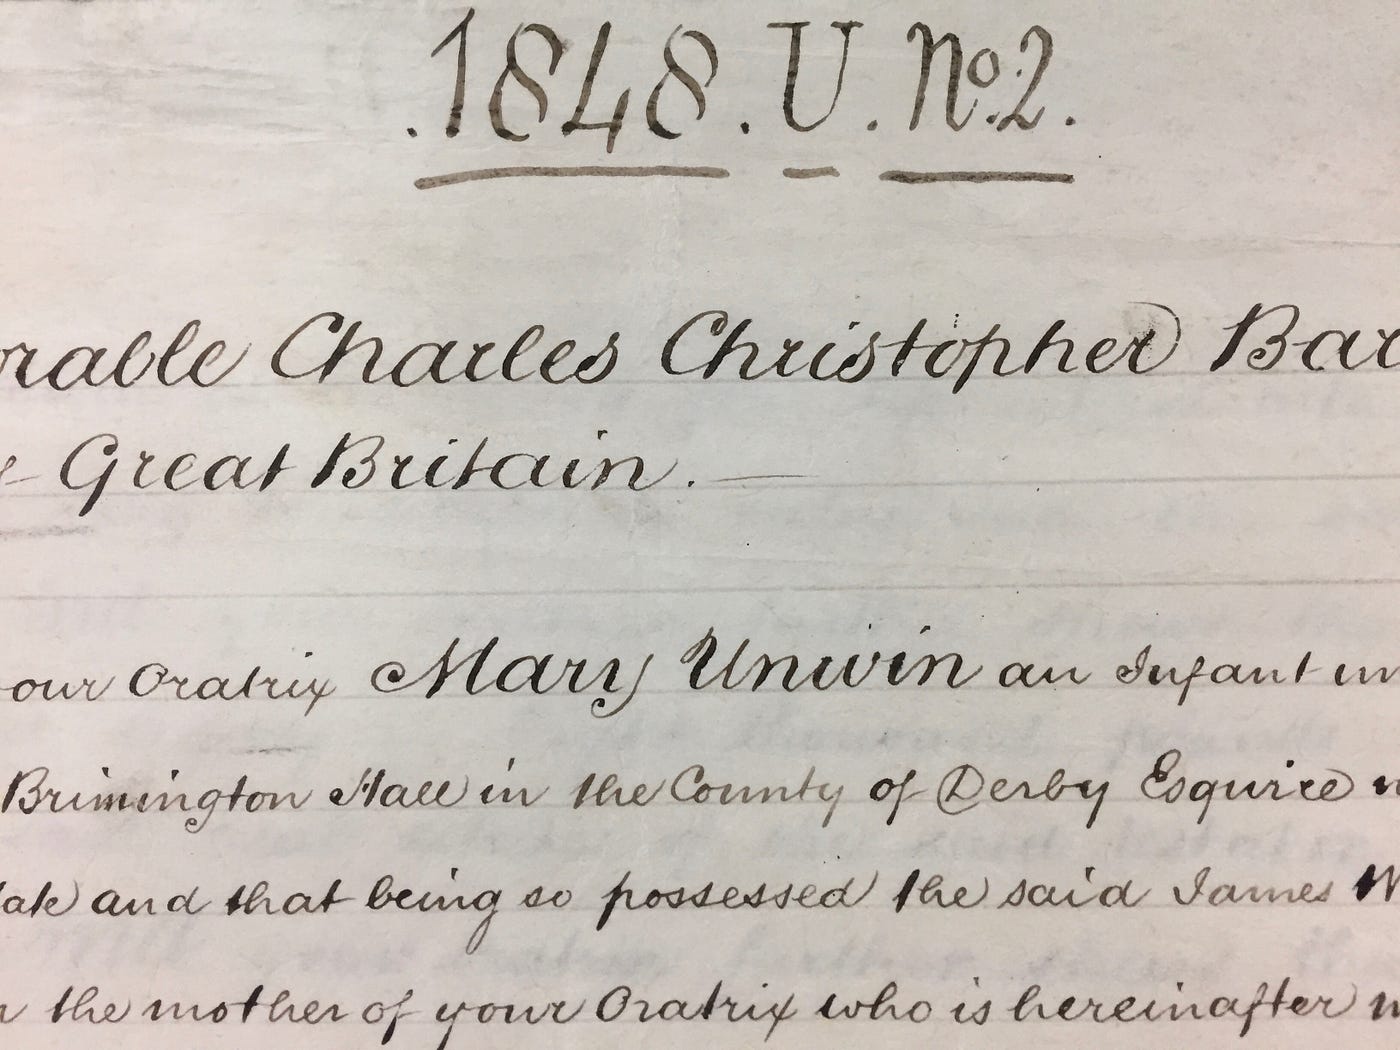 .1848.U.No.2.
orable Charles Christopher Bar
Great Britain.
our Oratrix Mary Unwin an Infant
Brimington Hall in the County of Derby Esquire
ate and that being so possessed the said James W
the mother of your Oratrix who is hereinafter